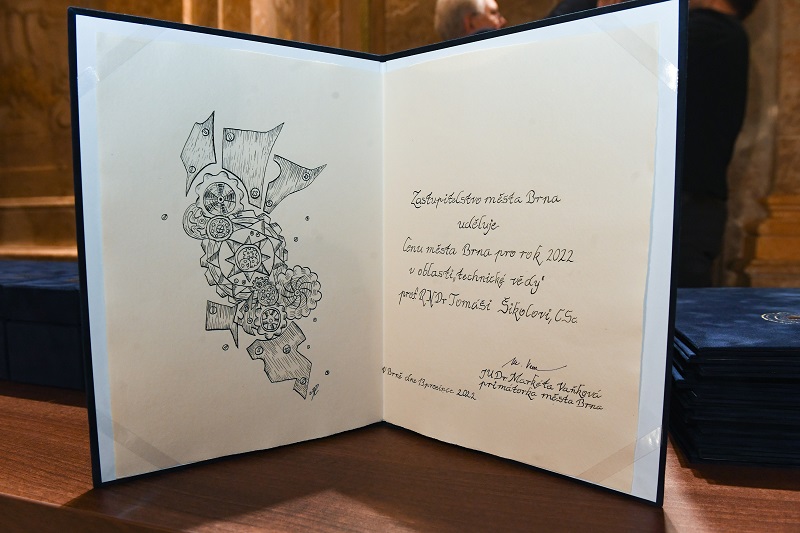 Zastupitelstvo města Brna
uděluje
Cenu města Brna pro rok 2022
v oblasti „technické vědy“
prof. RNDr. Tomáši Šikolovi, CSc.
V Brně dne 13. prosince 2022
JUDr. Markéta Vaňková
primátorka města Brna